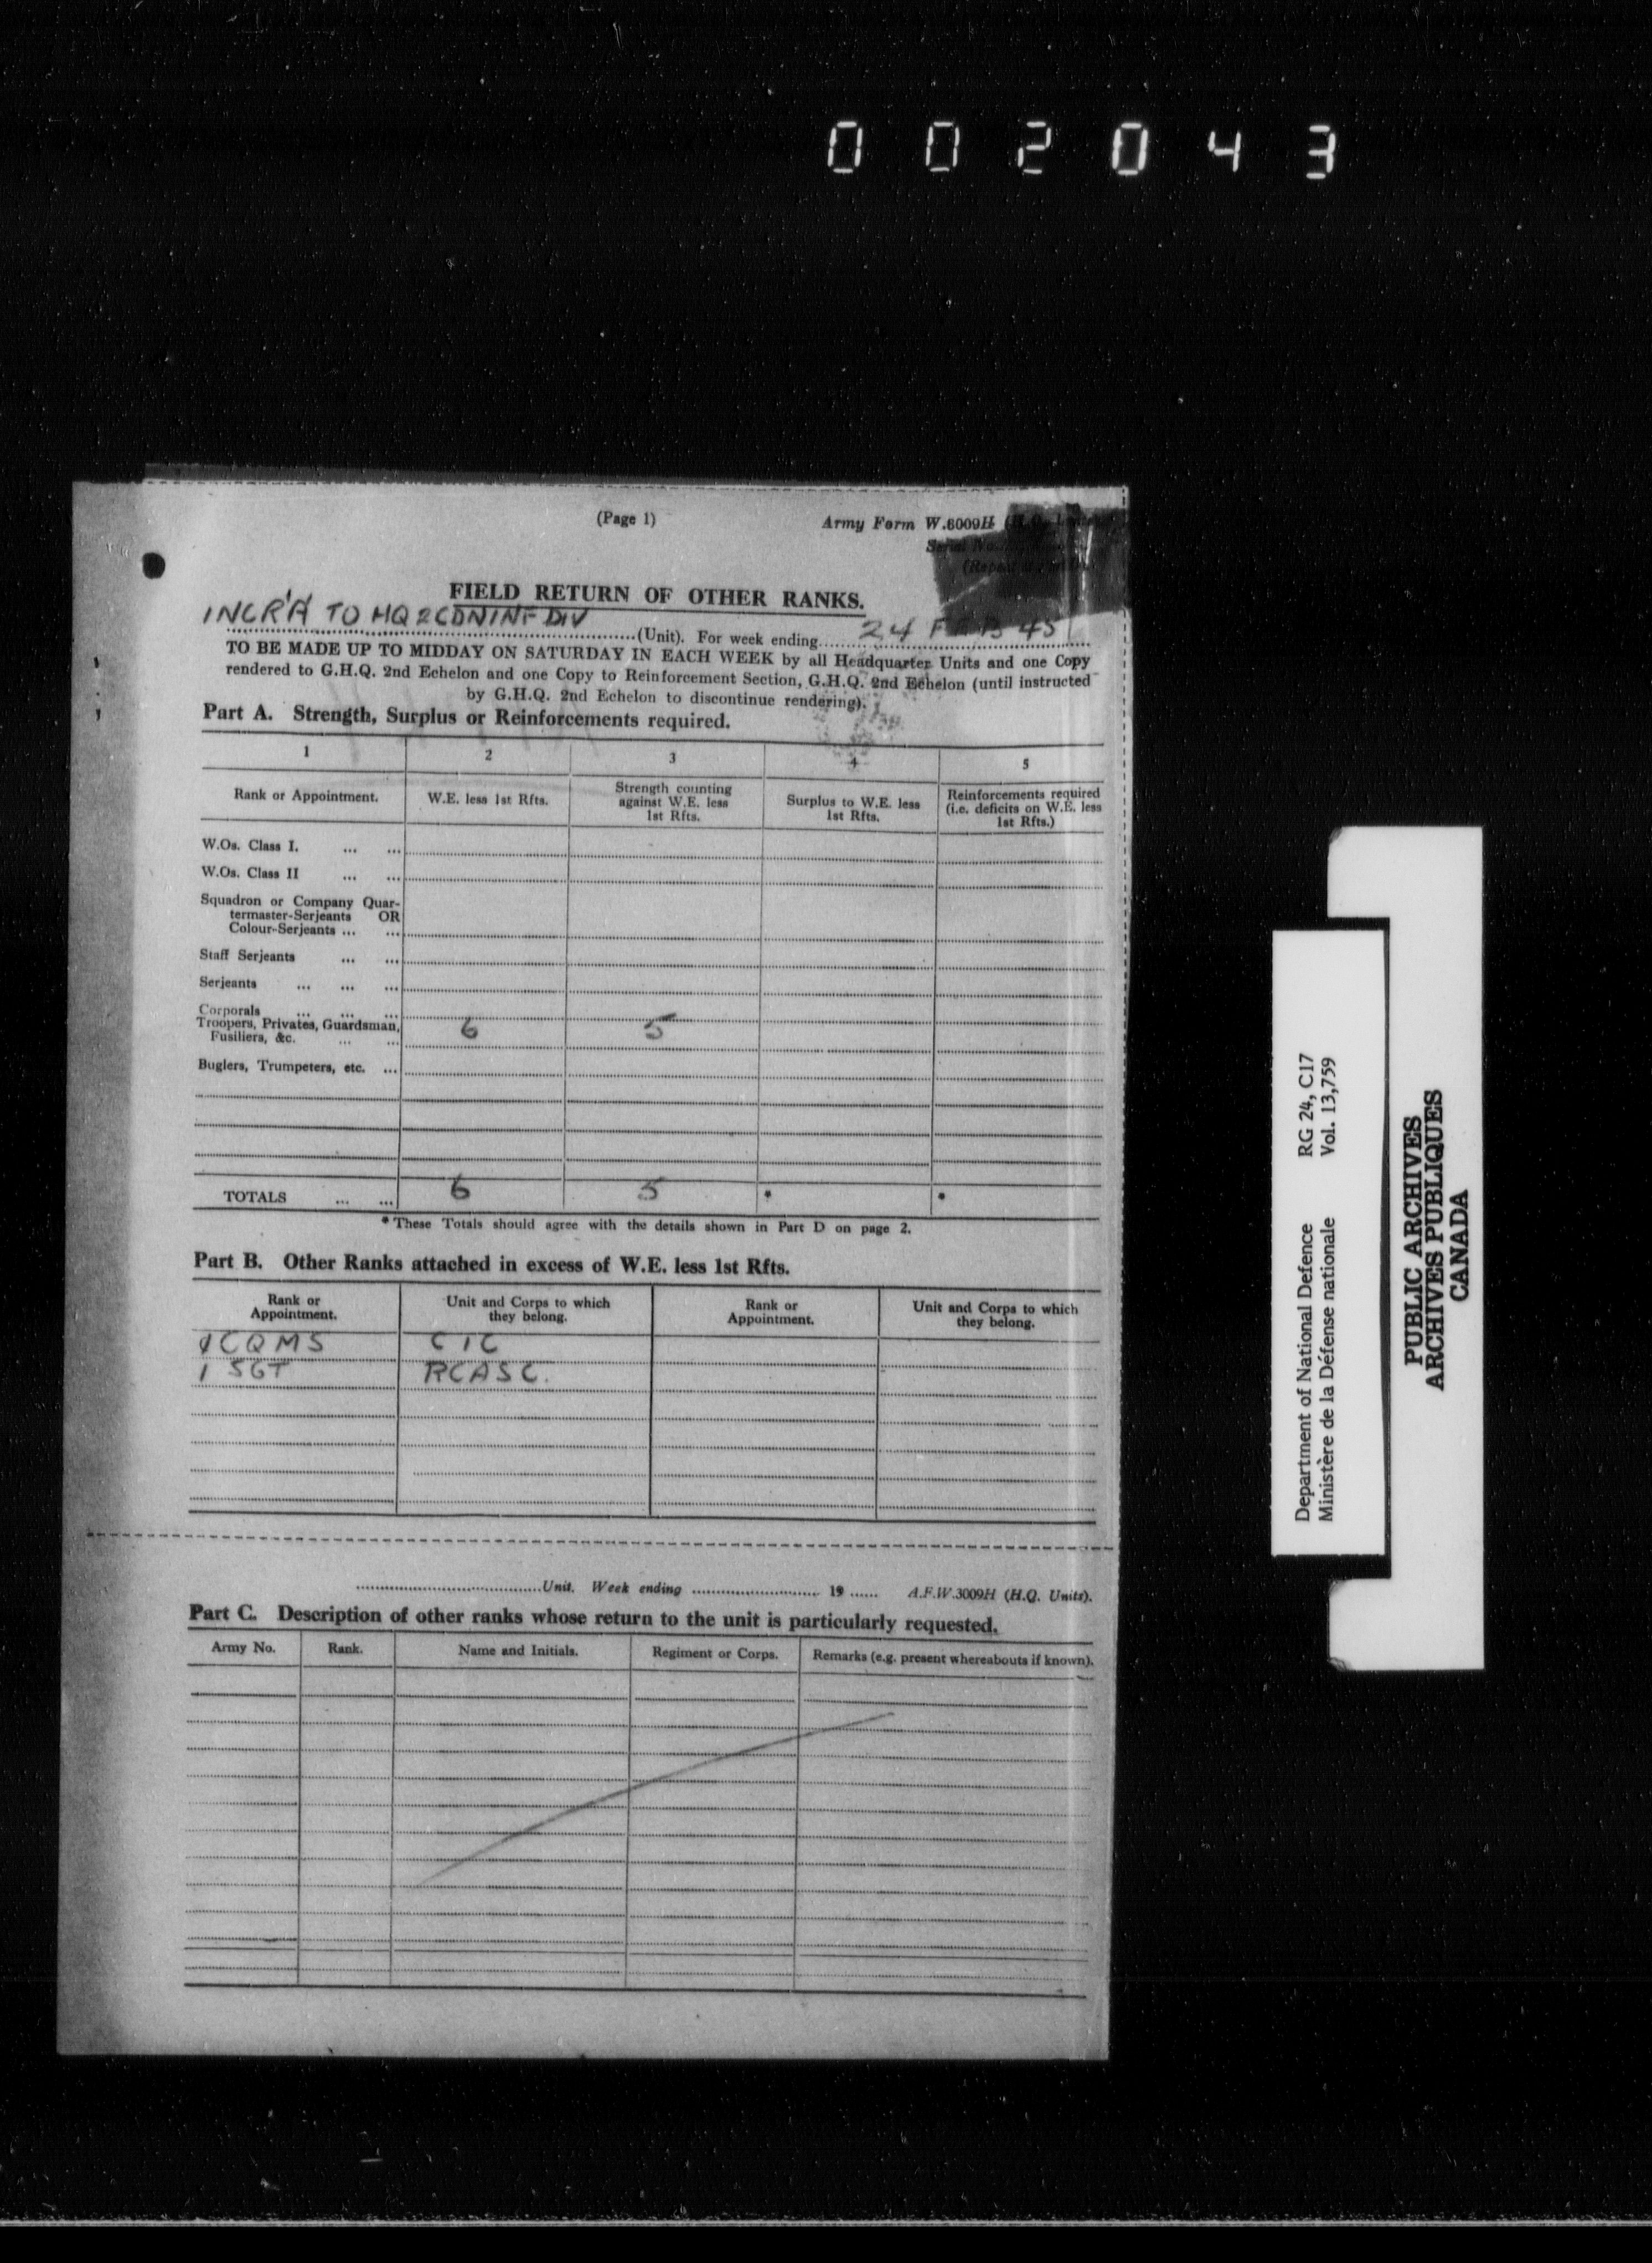 0 0 2 0 4 3
(Page 1)
Army Form W.6009H
FIELD RETURN OF OTHER RANKS.
INCR'A' TO HQ 2 CDN INF DIV
(Unit). For week ending 24 FEB 45
TO BE MADE UP TO MIDDAY ON SATURDAY IN EACH WEEK by all Headquarter Units and one Copy
rendered to G.H.Q. 2nd Echelon and one Copy to Reinforcement Section, G.H.Q. 2nd Echelon (until instructed
by G.H.Q. 2nd Echelon to discontinue rendering).
Part A. Strength, Surplus or Reinforcements required.
1 2 3 4 5
Rank or Appointment.
W.E. less 1st Rfts.
Strength counting
against W.E. less
1st Rfts.
Surplus to W.E. less
1st Rfts.
Reinforcements required
(i.e. deficits on W.E. less
1st Rfts.)
W.Os. Class I. ... ...
W.Os. Class II ... ...
Squadron or Company Quar-
termaster-Serjeants OR
Colour-Serjeants ... ...
Staff Serjeants ... ...
Serjeants ... ... ...
Corporals ... ... ...
Troopers, Privates, Guardsman, 6 5
Fusiliers, &c. ... ...
Buglers, Trumpeters, etc. ...
TOTALS ... ... 6 5 * *
* These Totals should agree with the details shown in Part D on page 2.
Part B. Other Ranks attached in excess of W.E. less 1st Rfts.
Rank or
Appointment.
Unit and Corps to which
they belong.
Rank or
Appointment.
Unit and Corps to which
they belong.
1 CQMS CIC
1 SGT RCASC.
Unit. Week ending 19 ...... A.F.W.3009H (H.Q. Units).
Part C. Description of other ranks whose return to the unit is particularly requested.
Army No. Rank. Name and Initials. Regiment or Corps. Remarks (e.g. present whereabouts if known).
Department of National Defence RG 24, C17
Ministère de la Défense nationale Vol. 13,759
PUBLIC ARCHIVES
ARCHIVES PUBLIQUES
CANADA